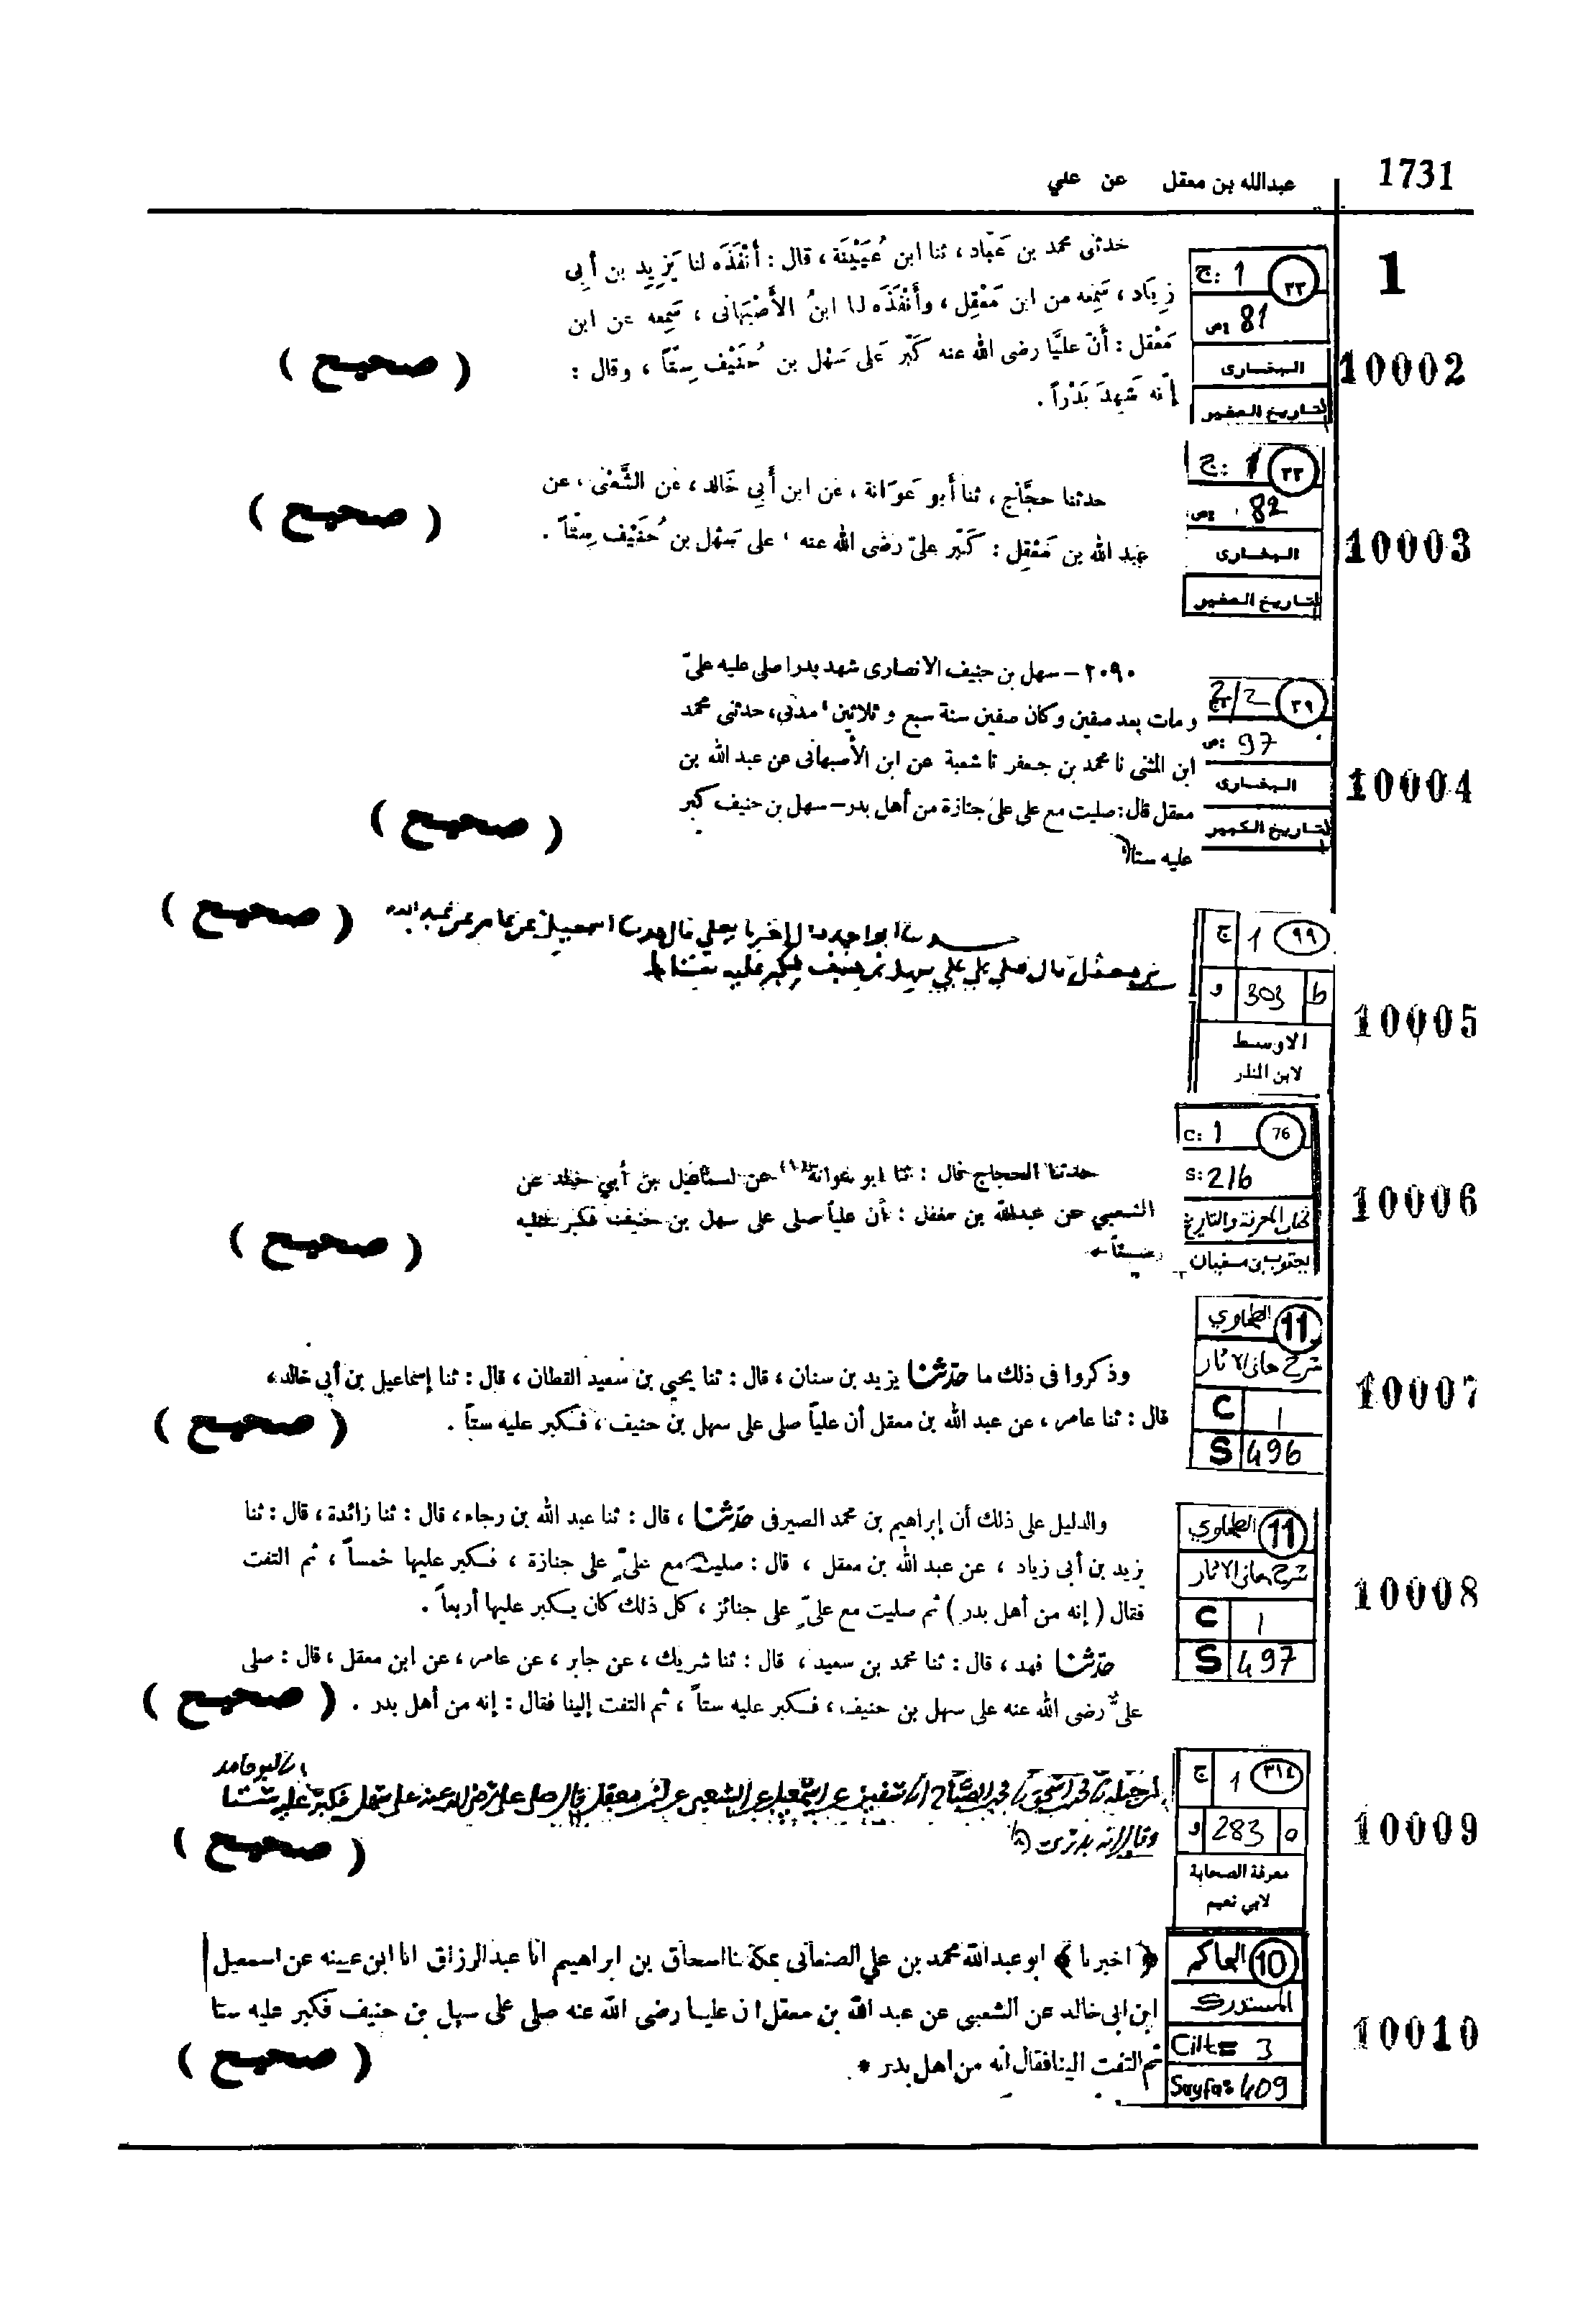 1731
عبدالله بن معقل عن علي
1
ج: 1 ٢٣
ص: 81
البخارى
التاريخ الصغير
10002
حدثنى محمد بن عَبّاد ، ثنا ابن عُيَيْنَة ، قال : أَنْفَذَه لنا يَزِيد بن أَبِى
زِيَاد ، سَمِعه من ابن مَعْقِل ، وأَنْفَذَه لنا ابنُ الأَصْبَهَانى ، سَمِعه عن ابن
مَعْقل : أَنّ عليًّا رضى الله عنه كَبّر عَلَى سَهْل بن حُنَيْف سِتًّا ، وقال :
إنّه شَهِدَ بَدْراً .
( صحيح )
ج: 1 ٢٣
ص: 82
البخارى
التاريخ الصغير
10003
حدثنا حجَّاج ، ثنا أَبو عَوَانة ، عَن ابن أَبِي خَالد ، عَن الشَّعْبى ، عن
عبد الله بن مَعْقِل : كَبّر عليّ رضى الله عنه ، على سَهْل بن حُنَيْف سِتًّا .
( صحيح )
2/2 ٣٩
ص: 97
البخارى
التاريخ الكبير
10004
٢٠٩٠ - سهل بن حنيف الانصارى شهد بدرا صلى عليه علىّ
ومات بعد صفين وكان صفين سنة سبع وثلاثين، مدنى، حدثنى محمد
ابن المثنى نا محمد بن جعفر نا شعبة عن ابن الأصبهانى عن عبد الله بن
معقل قال: صليت مع على على جنازة من أهل بدر - سهل بن حنيف كبر
عليه ستا
( صحيح )
ج 1 ٩٩
و 303 b
الاوسط
لابن المنذر
10005
( صحيح )
بن معقل قال صلى علي علي سهل بن حنيف فكبر عليه ستا
C: 1 76
S: 216
كتاب المعرفة والتاريخ
يعقوب بن سفيان
10006
حدثنا الحجاج قال : ثنا ابو عوانة عن اسماعيل بن أبي خالد عن
الشعبي عن عبدالله بن مغفل : أن علياً صلى على سهل بن حنيف فكبر عليه
ستاً .
( صحيح )
الطحاوي 11
شرح معانى الاثار
C ١
S 496
10007
وذكروا فى ذلك ما حدّثنا يزيد بن سنان ، قال : ثنا يحيي بن سعيد القطان ، قال : ثنا إسماعيل بن أبى خالد ،
قال : ثنا عامر ، عن عبد الله بن معقل أن علياً صلى على سهل بن حنيف ، فكبر عليه ستاً .
( صحيح )
الطحاوي 11
شرح معانى الاثار
C ١
S 497
10008
والدليل على ذلك أن إبراهيم بن محمد الصيرفى حدّثنا ، قال : ثنا عبد الله بن رجاء ، قال : ثنا زائدة ، قال : ثنا
يزيد بن أبى زياد ، عن عبد الله بن معقل ، قال : صليت مع علىّ على جنازة ، فكبر عليها خمساً ، ثم التفت
فقال ( إنه من أهل بدر ) ثم صليت مع علىّ على جنائز ، كل ذلك كان يكبر عليها أربعاً .
حدّثنا فهد ، قال : ثنا محمد بن سعيد ، قال : ثنا شريك ، عن جابر ، عن عامر ، عن ابن معقل ، قال : صلى
علىٌّ رضى الله عنه على سهل بن حنيف ، فكبر عليه ستاً ، ثم التفت إلينا فقال : إنه من أهل بدر .
( صحيح )
ج 1 ٣١٤
و 283 o
معرفة الصحابة
لابي نعيم
10009
ابو حامد
سفين عن اسمعيل عن الشعبى عن ابن معقل قال صلى على رضى الله عنه على سهل فكبر عليه ستا
وقال انه بدرى
( صحيح )
الحاكم 10
المستدرك
Cilt= 3
Sayfa: 409
10010
﴿ اخبرنا ﴾ ابو عبد الله محمد بن علي الصنعانى بمكة ثنا اسحاق بن ابراهيم انا عبد الرزاق انا ابن عيينه عن اسمعيل
ابن ابى خالد عن الشعبى عن عبد الله بن معقل ان عليا رضى الله عنه صلى على سهل بن حنيف فكبر عليه ستا
ثم التفت الينا فقال انه من اهل بدر *
( صحيح )